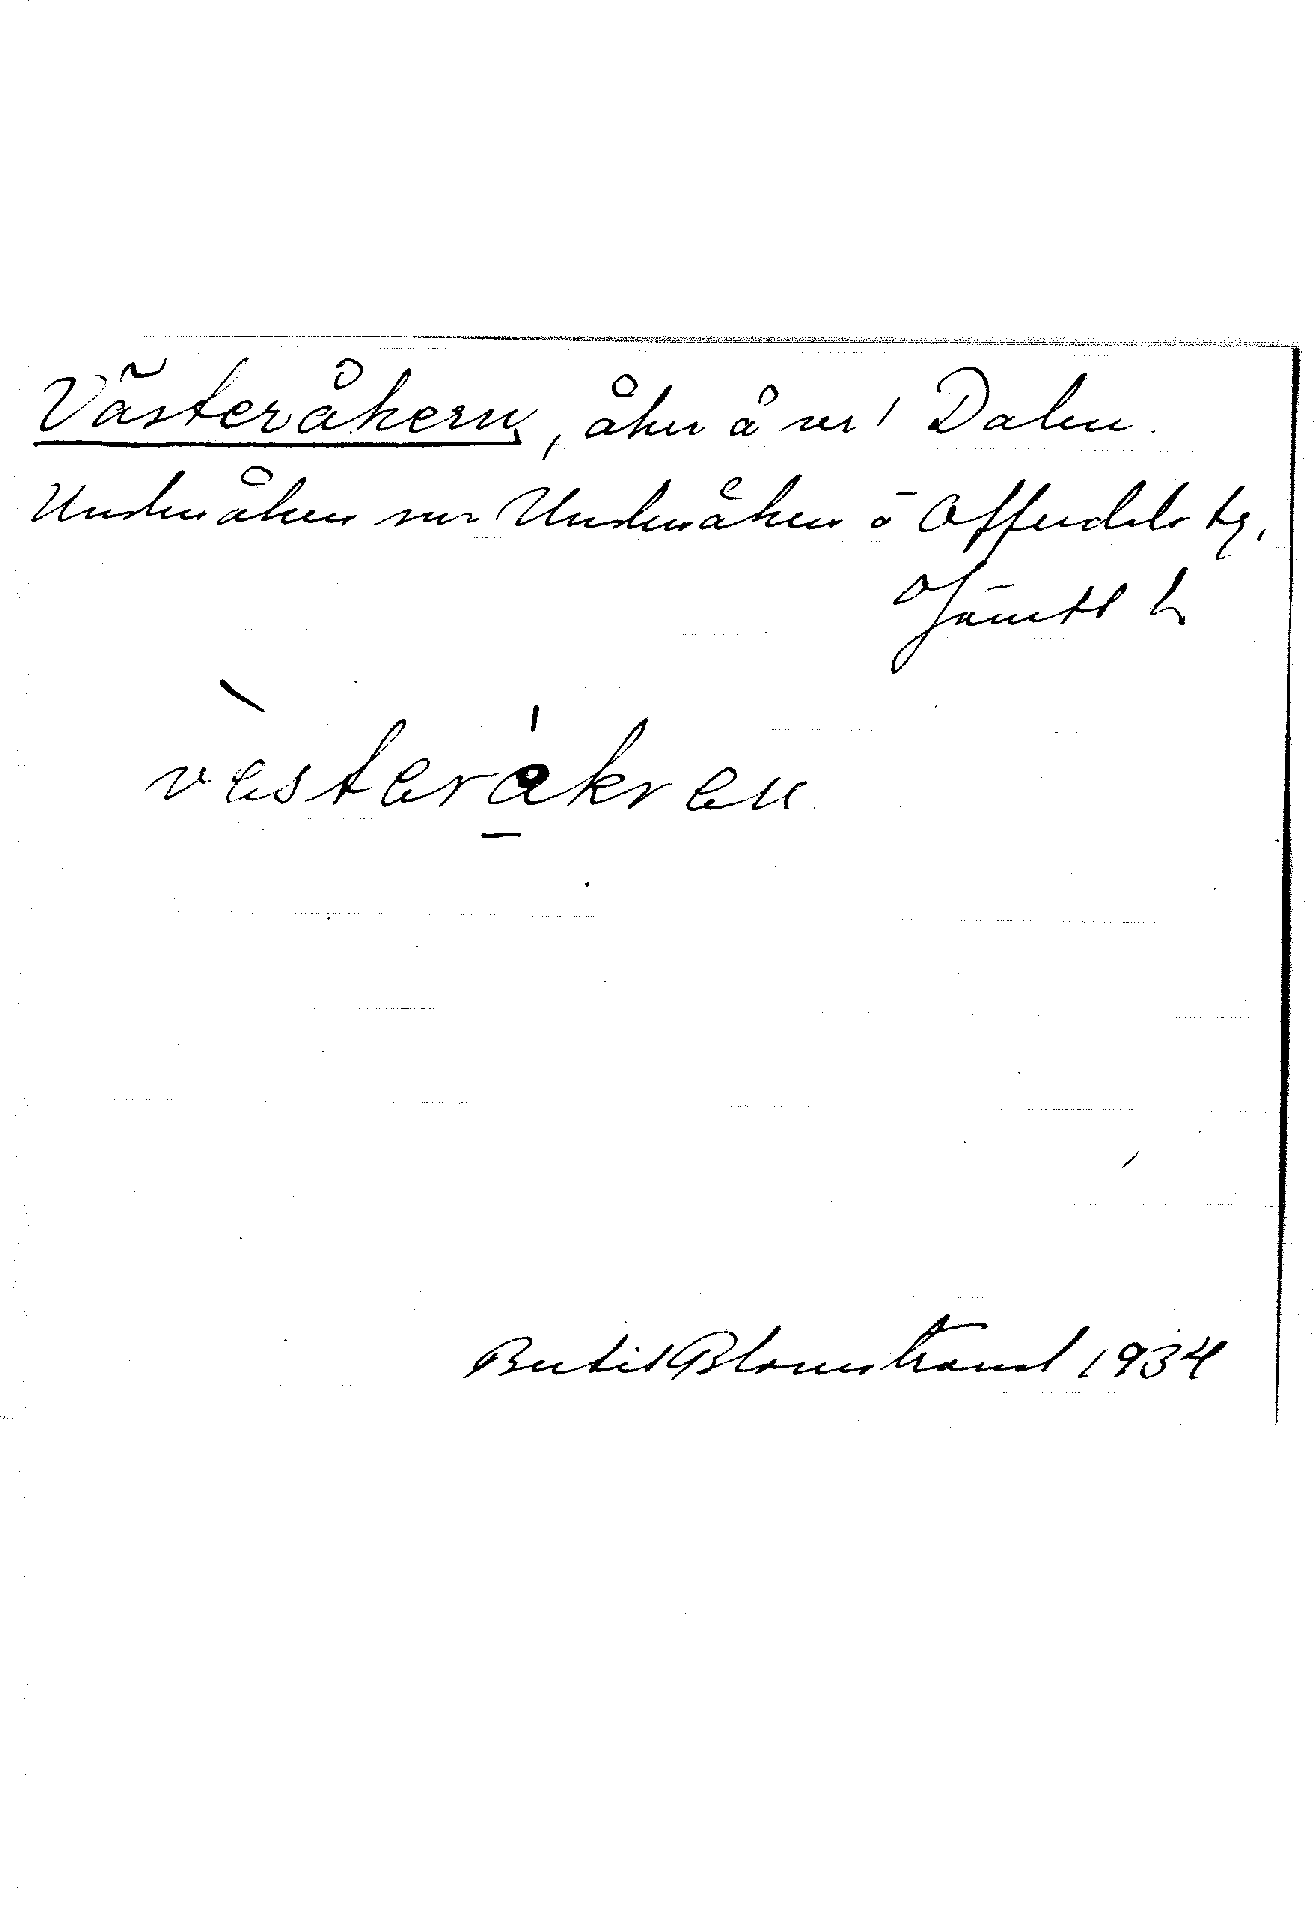 Västeråkern, åker å nr 1 Dalen.
Undersåkers sn Undersåkers o Offerdals tg.
Jämtl l
västeråkren
Bertil Blomstrand 1934